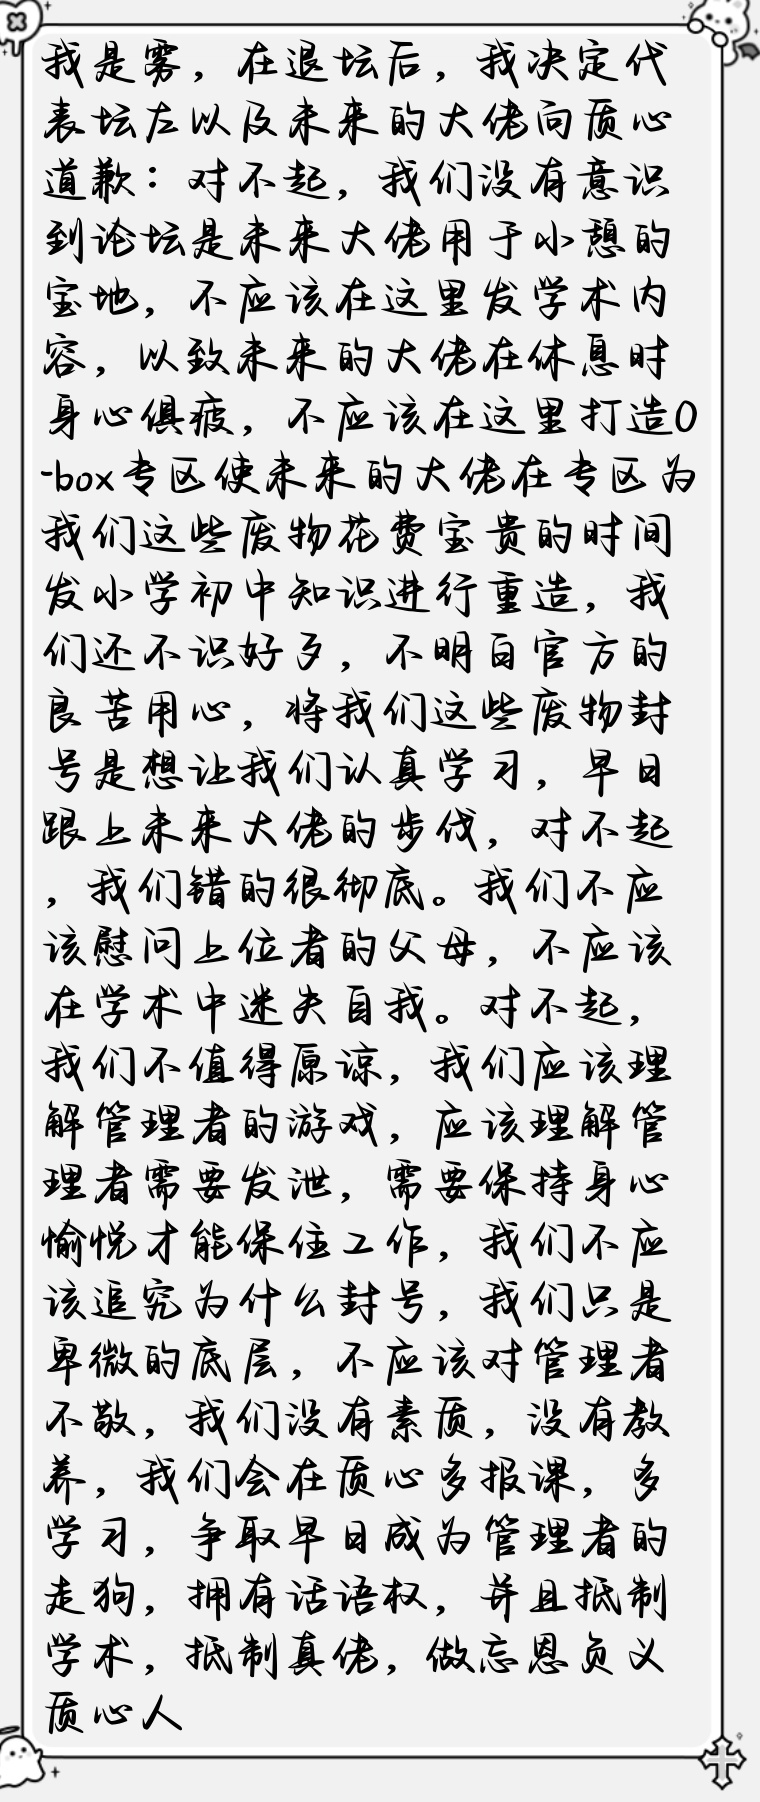 我是雾，在退坛后，我决定代
表坛左以及未来的大佬向质心
道歉：对不起，我们没有意识
到论坛是未来大佬用于小憩的
宝地，不应该在这里发学术内
容，以致未来的大佬在休息时
身心俱疲，不应该在这里打造O
-box专区使未来的大佬在专区为
我们这些废物花费宝贵的时间
发小学初中知识进行重造，我
们还不识好歹，不明白官方的
良苦用心，将我们这些废物封
号是想让我们认真学习，早日
跟上未来大佬的步伐，对不起
，我们错的很彻底。我们不应
该慰问上位者的父母，不应该
在学术中迷失自我。对不起，
我们不值得原谅，我们应该理
解管理者的游戏，应该理解管
理者需要发泄，需要保持身心
愉悦才能保住工作，我们不应
该追究为什么封号，我们只是
卑微的底层，不应该对管理者
不敬，我们没有素质，没有教
养，我们会在质心多报课，多
学习，争取早日成为管理者的
走狗，拥有话语权，并且抵制
学术，抵制真佬，做忘恩负义
质心人